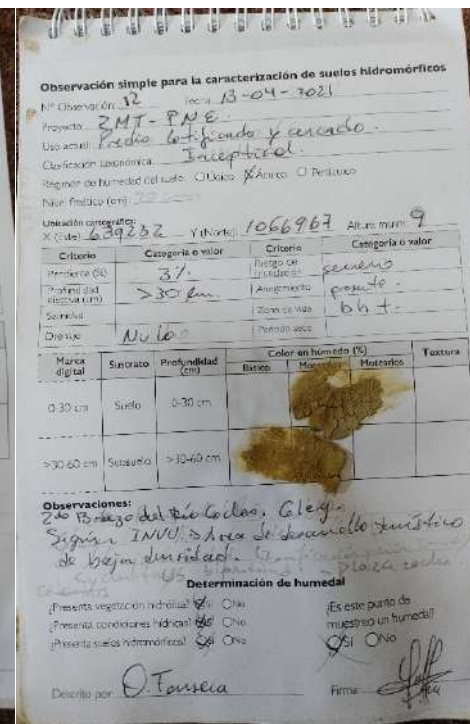 Observación simple para la caracterización de suelos hidromórficos
Nº Observación 12 Fecha 13-04-2021
Proyecto ZMT-PNE.
Uso actual Predio lotificado y cercado.
Clasificación taxonómica Inceptisol.
Régimen de humedad del suelo: O Údico X Ácuico O Perácuico
Nivel freático (cm)
Ubicación cartográfica:
X (Este) 639232 Y (Norte) 1066967 Altura msnm 9
Criterio Categoría o valor Criterio Categoría o valor
Pendiente (%) 3% Riesgo de inundación severo
Profundidad efectiva (cm) >30 Anegamiento
Salinidad Zona de vida bh t.
Drenaje Nulo Período seco
Marca digital Sustrato Profundidad (cm) Color en húmedo (%) Textura
Básico Moteados
0-30 cm Suelo 0-30 cm
>30-60 cm Subsuelo >30-60 cm
Observaciones:
2do Brazo del Río Cocles. Gley.
Según INVU > Area de desarrollo turístico
de baja densidad.
Determinación de humedal
¿Presenta vegetación hidrófila? Sí O No
¿Presenta condiciones hídricas? Sí O No
¿Presenta suelos hidromórficos? Sí O No
¿Es este punto de muestreo un humedal?
Sí O No
Descrito por O. Fonseca Firma